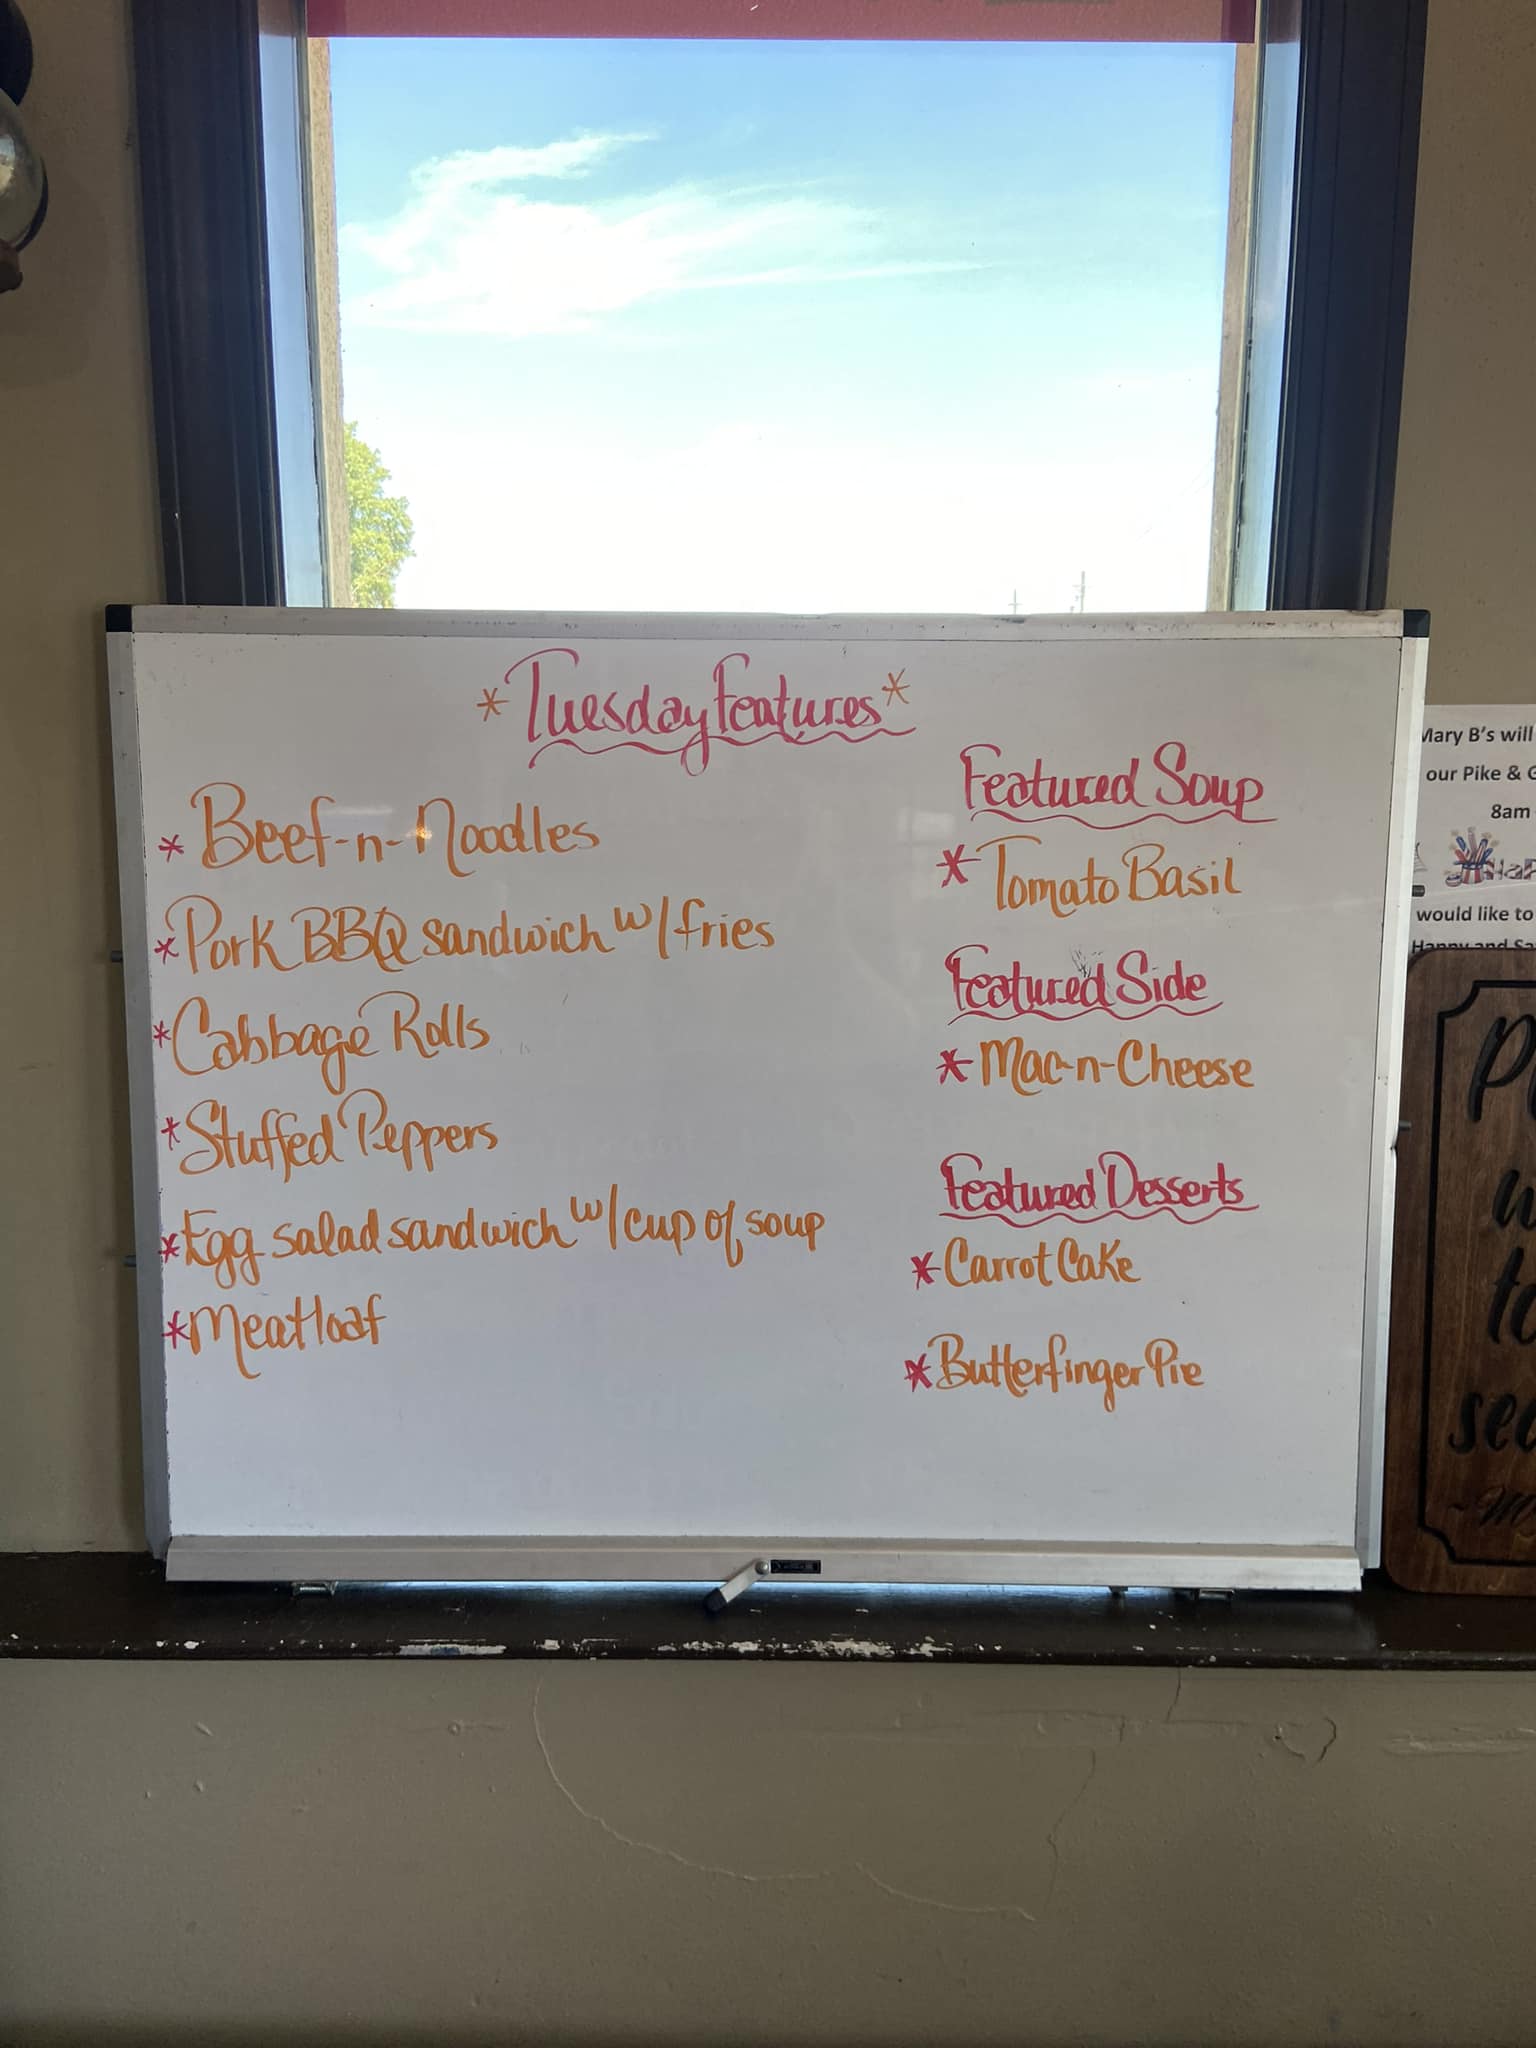 *Tuesday Features*
* Beef-n-Noodles
* Pork BBQ sandwich w/fries
* Cabbage Rolls
* Stuffed Peppers
* Egg salad sandwich w/cup of soup
* Meatloaf
Featured Soup
* Tomato Basil
Featured Side
* Mac-n-Cheese
Featured Desserts
* Carrot Cake
* Butterfinger Pie
Mary B's will
our Pike & G
8am
HaP
would like to
Happy and Sa